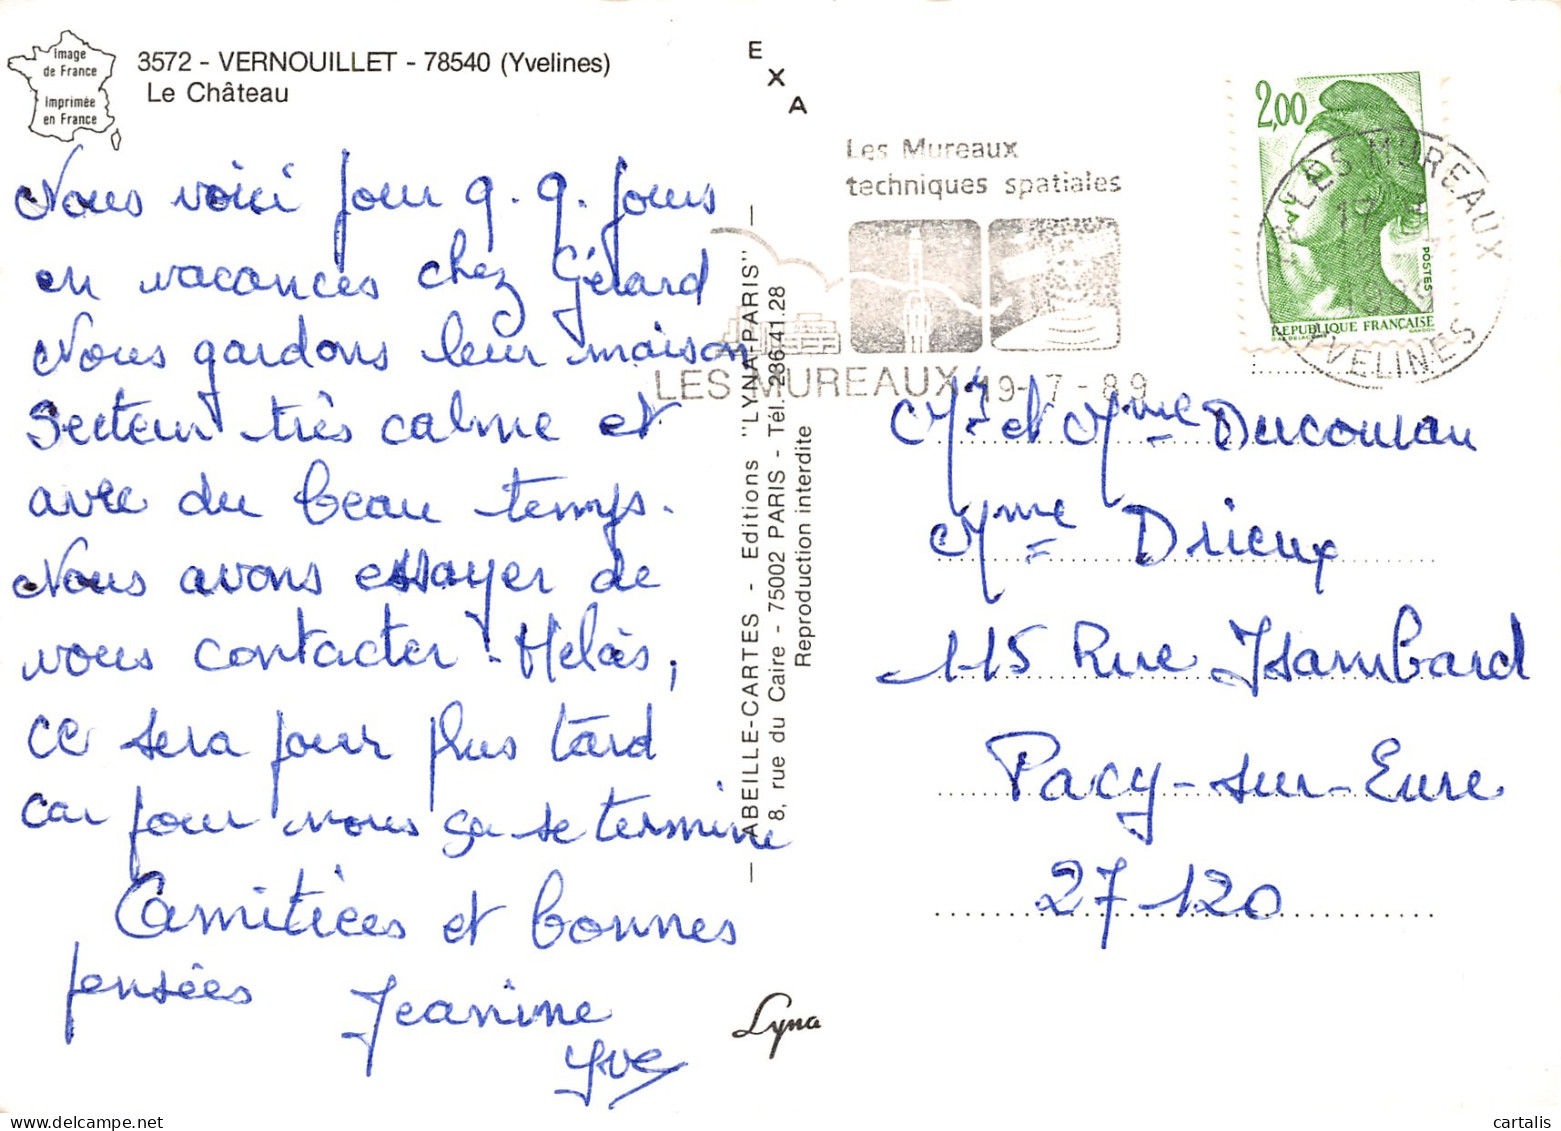 Image
de France
Imprimée
en France
3572 - VERNOUILLET - 78540 (Yvelines)
Le Château
Nous voici pour q. q. jours
en vacances chez Gérard
Nous gardons leur maison
Secteur très calme et
avec du beau temps.
Nous avons essayer de
vous contacter - Helàs,
ce sera pour plus tard
car pour nous ça se termine
Amitiées et bonnes
pensées Jeanine
Yve
E
X
A
ABEILLE-CARTES - Editions "LYNA-PARIS"
8, rue du Caire - 75002 PARIS - Tél. 236.41.28
Reproduction interdite
Lyna
Les Mureaux
techniques spatiales
LES MUREAUX 19-7-89
2,00
POSTES
REPUBLIQUE FRANÇAISE
LES MUREAUX
YVELINES
Mr et Mme Ducoulau
Mme Drieux
115 Rue Isambard
Pacy-sur-Eure
27-120
www.delcampe.net
cartalis